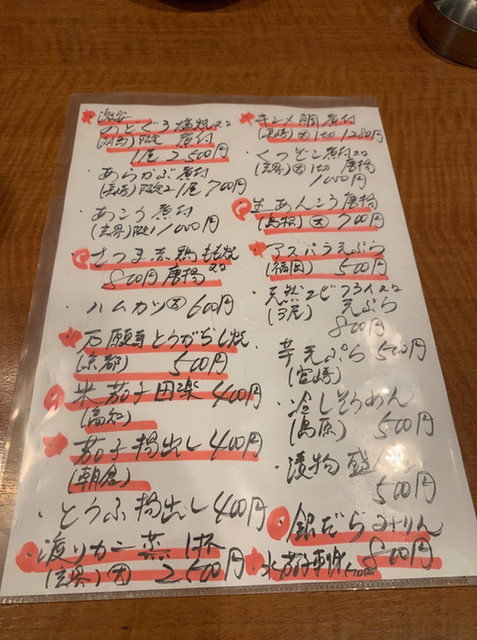 のどぐろ塩焼又は
(対馬)限定 煮付
1尾 2,500円
あらかぶ煮付
(長崎)限定2 1尾 700円
あこう煮付
(玄界)限定 1000円
さつま赤鶏もも焼
800円 唐揚又は
ハムカツ大 600円
万願寺とうがらし焼
(京都) 500円
米茄子田楽 400円
(高知)
茄子揚出し 400円
(朝倉)
とうふ揚出し 400円
渡りカニ蒸 1杯
(玄界)大 2,500円
キンメ鯛煮付
(長崎)大1切1280円
くつぞこ煮付又は
(玄界)大1切 唐揚
1000円
生あんこう唐揚
(島根)大 700円
アスパラ天ぷら
(福岡) 500円
天然エビフライ又は
天ぷら
800円
芋天ぷら 500円
(宮崎)
冷しそうめん
(島原) 500円
漬物盛
500円
銀だらみりん
800円
水茄子刺身